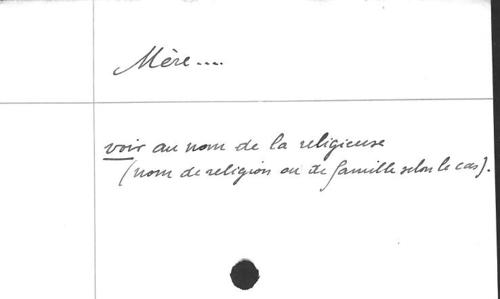 Mère....
voir au nom de la religieuse
(nom de religion ou de famille selon le cas).